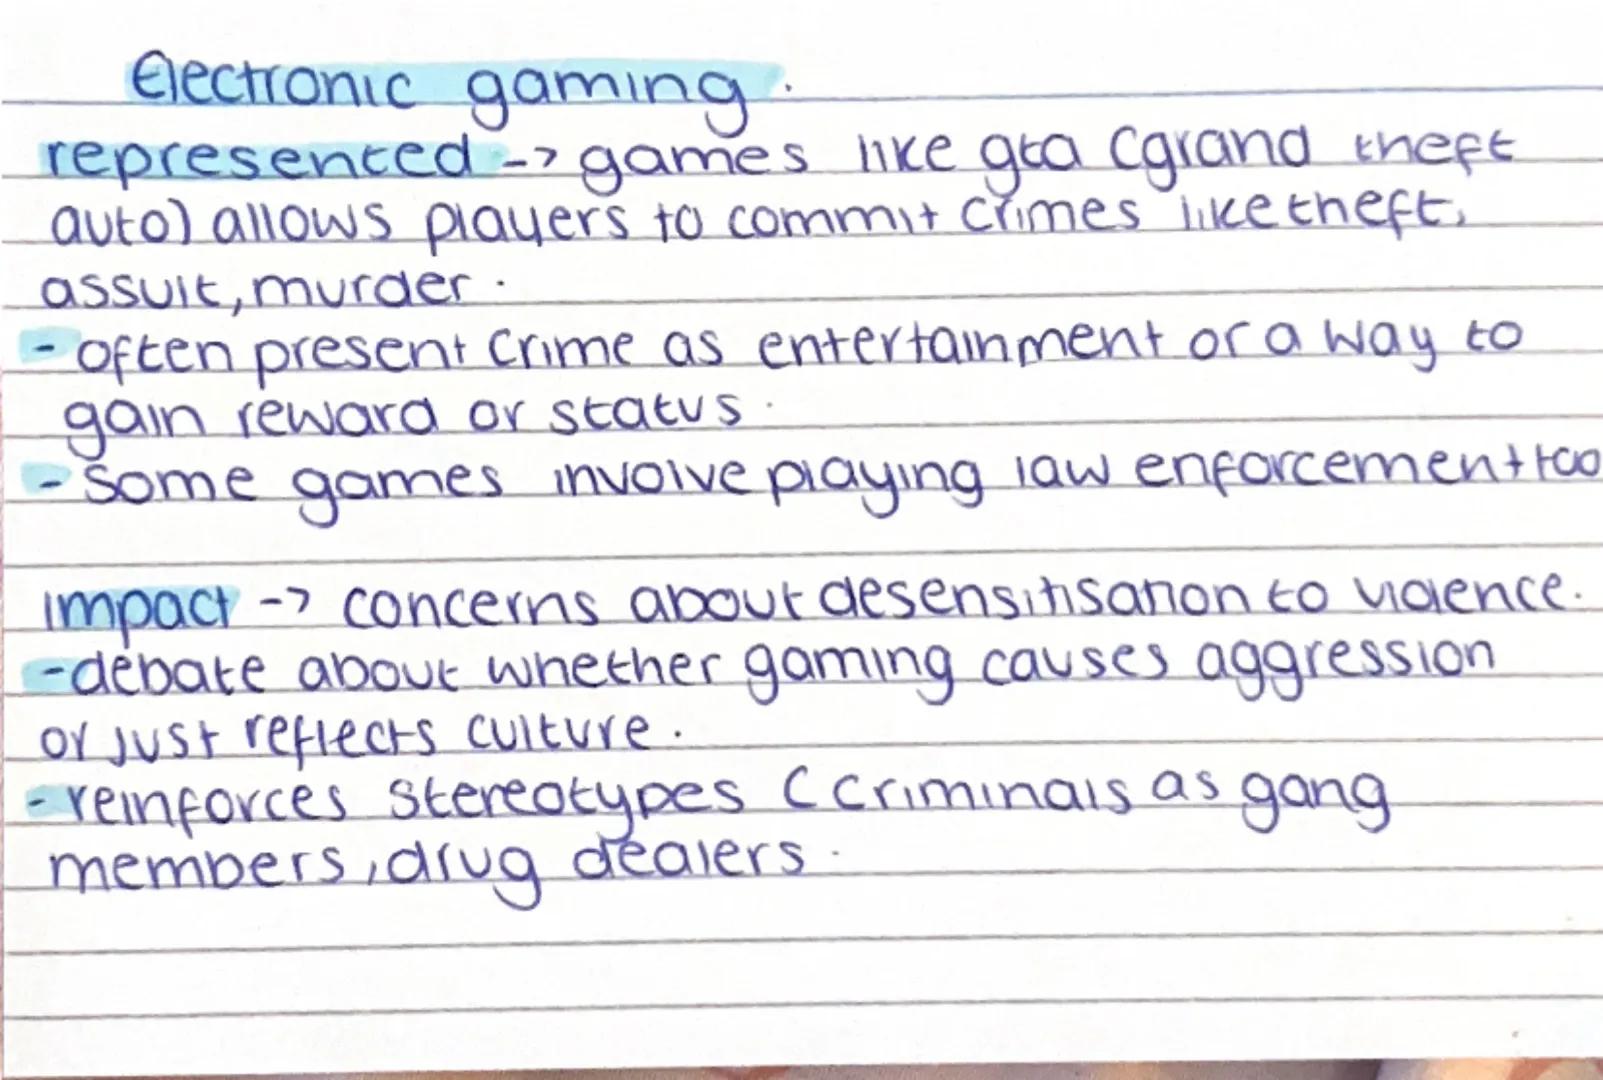 Electronic gaming.
represented -> games like gta (grand theft
auto) allows players to commit crimes like theft,
assult, murder.
- often present crime as entertainment or a way to
gain reward or status.
- some games involve playing law enforcement too
impact -> concerns about desensitisation to violence.
- debate about whether gaming causes aggression
or just reflects culture.
- reinforces stereotypes (criminals as gang
members, drug dealers.